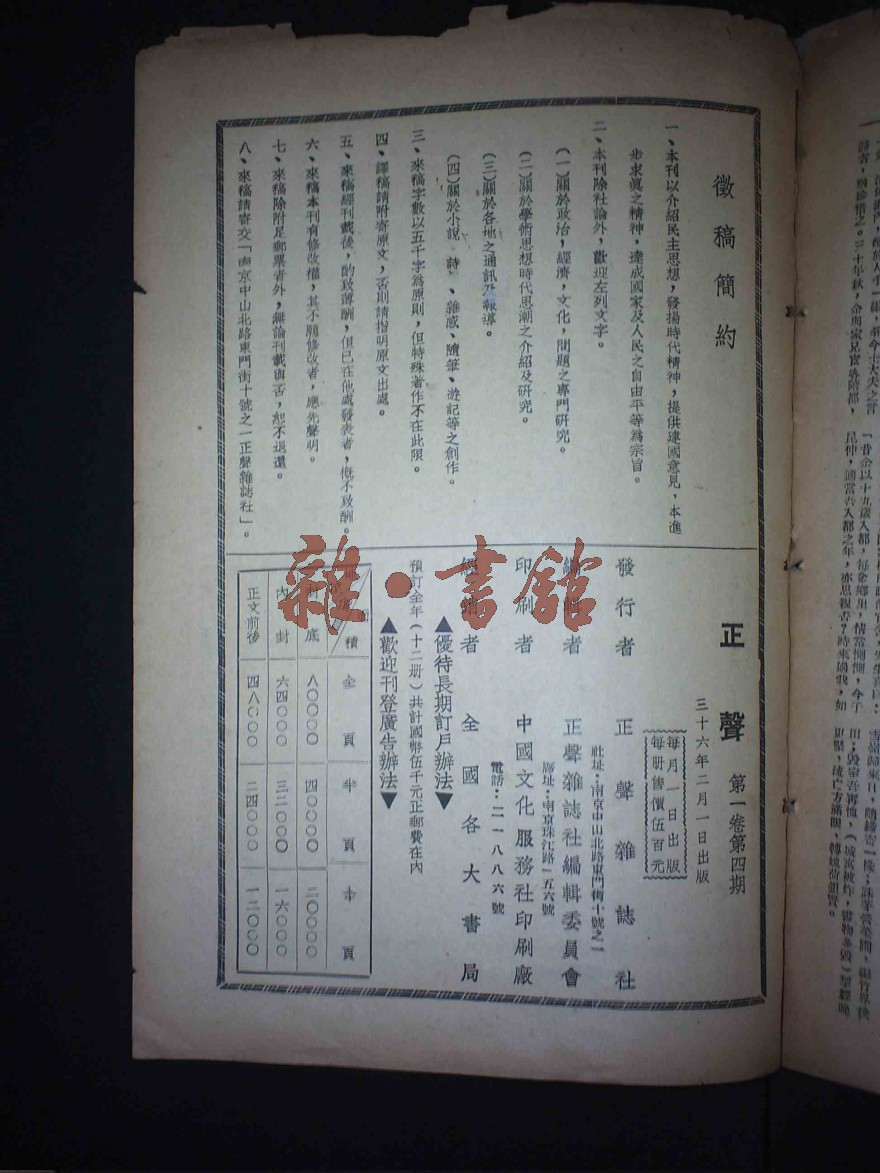 徵稿簡約
一、本刊以介紹民主思想，發揚時代精神，提供建國意見，本進
步求眞之精神，達成國家及人民之自由平等為宗旨。
二、本刊除社論外，歡迎左列文字。
（一）關於政治，經濟，文化，問題之專門研究。
（二）關於學術思想時代思潮之介紹及研究。
（三）關於各地之通訊及報導。
（四）關於小說、詩、雜感、隨筆、遊記等之創作。
三、來稿字數以五千字為原則，但特殊著作不在此限。
四、譯稿請附寄原文，否則請指明原文出處。
五、來稿經刊載後，酌致薄酬，但已在他處發表者，概不致酬。
六、來稿本刊有修改權，其不願修改者，應先聲明。
七、來稿除附足郵票者外，無論刊載與否，恕不退還。
八、來稿請寄交「南京中山北路東門街十號之一正聲雜誌社」。
正聲 第一卷第四期
三十六年二月一日出版
每月一日出版
每册售價伍百元
發行者 正聲雜誌社
社址：南京中山北路東門街十號之一
編輯者 正聲雜誌社編輯委員會
印刷者 中國文化服務社印刷廠
廠址：南京珠江路一五六號
電話：二一八八六號
經銷者 全國各大書局
▲優待長期訂戶辦法▼
預訂全年（十二册）共計國幣伍千元正郵費在內
▲歡迎刊登廣告辦法▼
面積 全頁 半頁
封底 八〇〇〇〇 四〇〇〇〇 二〇〇〇〇
內封 六四〇〇〇 三二〇〇〇 一六〇〇〇
正文前後 四八〇〇〇 二四〇〇〇 一二〇〇〇
雜·書館